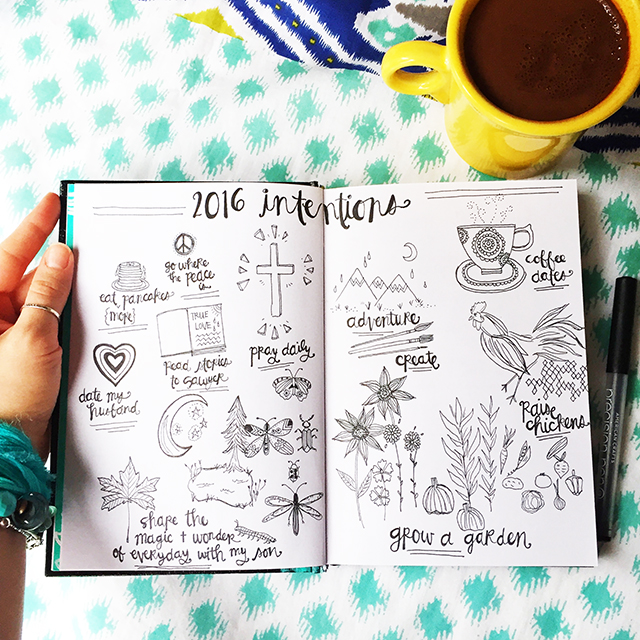 2016 intentions
go where
the peace
is
eat pancakes
{more}
TRUE
LOVE
Read stories
to Sawyer
pray daily
date my
husband
share the
magic + wonder
of everyday with my son
adventure
create
coffee
dates
Raise
chickens
grow a garden
precision
AMERICAN CRAFTS